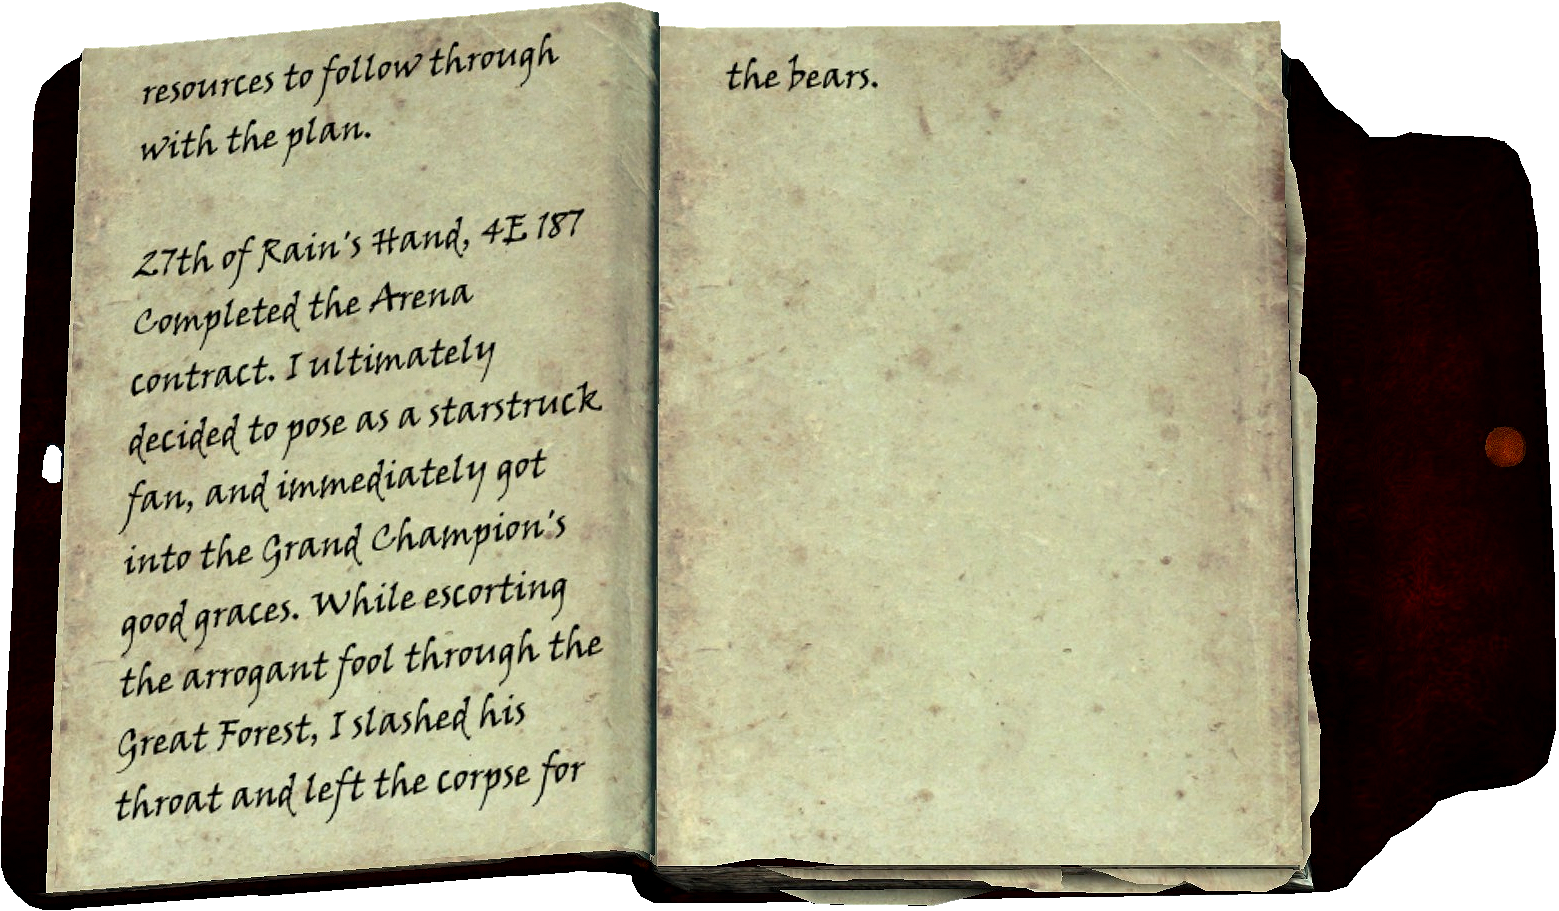 resources to follow through
with the plan.
27th of Rain's Hand, 4E 187
Completed the Arena
contract. I ultimately
decided to pose as a starstruck
fan, and immediately got
into the Grand Champion's
good graces. While escorting
the arrogant fool through the
Great Forest, I slashed his
throat and left the corpse for
the bears.